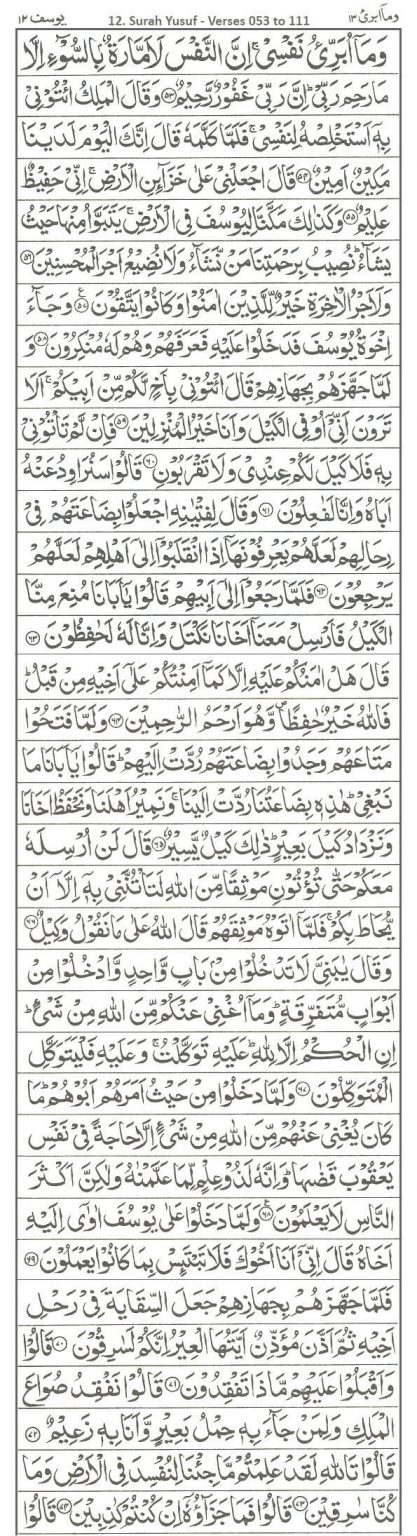 وما ابرئ ١٣ 12. Surah Yusuf - Verses 053 to 111 يوسف ١٢
وَمَاۤ اُبَرِّئُ نَفْسِیْ ۚ اِنَّ النَّفْسَ لَاَمَّارَةٌۢ بِالسُّوْٓءِ اِلَّا
مَا رَحِمَ رَبِّیْ ؕ اِنَّ رَبِّیْ غَفُوْرٌ رَّحِیْمٌ ﴿۵۳﴾ وَقَالَ الْمَلِكُ ائْتُوْنِیْ
بِهٖۤ اَسْتَخْلِصْهُ لِنَفْسِیْ ۚ فَلَمَّا كَلَّمَهٗ قَالَ اِنَّكَ الْیَوْمَ لَدَیْنَا
مَكِیْنٌ اَمِیْنٌ ﴿۵۴﴾ قَالَ اجْعَلْنِیْ عَلٰی خَزَآئِنِ الْاَرْضِ ۚ اِنِّیْ حَفِیْظٌ
عَلِیْمٌ ﴿۵۵﴾ وَكَذٰلِكَ مَكَّنَّا لِیُوْسُفَ فِی الْاَرْضِ ۚ یَتَبَوَّاُ مِنْهَا حَیْثُ
یَشَآءُ ؕ نُصِیْبُ بِرَحْمَتِنَا مَنْ نَّشَآءُ وَلَا نُضِیْعُ اَجْرَ الْمُحْسِنِیْنَ ﴿۵۶﴾
وَلَاَجْرُ الْاٰخِرَةِ خَیْرٌ لِّلَّذِیْنَ اٰمَنُوْا وَكَانُوْا یَتَّقُوْنَ ﴿۵۷﴾ وَجَآءَ
اِخْوَةُ یُوْسُفَ فَدَخَلُوْا عَلَیْهِ فَعَرَفَهُمْ وَهُمْ لَهٗ مُنْكِرُوْنَ ﴿۵۸﴾ وَ
لَمَّا جَهَّزَهُمْ بِجَهَازِهِمْ قَالَ ائْتُوْنِیْ بِاَخٍ لَّكُمْ مِّنْ اَبِیْكُمْ ۚ اَلَا
تَرَوْنَ اَنِّیْۤ اُوْفِی الْكَیْلَ وَاَنَا خَیْرُ الْمُنْزِلِیْنَ ﴿۵۹﴾ فَاِنْ لَّمْ تَاْتُوْنِیْ
بِهٖ فَلَا كَیْلَ لَكُمْ عِنْدِیْ وَلَا تَقْرَبُوْنِ ﴿۶۰﴾ قَالُوْا سَنُرَاوِدُ عَنْهُ
اَبَاهُ وَاِنَّا لَفٰعِلُوْنَ ﴿۶۱﴾ وَقَالَ لِفِتْیٰنِهِ اجْعَلُوْا بِضَاعَتَهُمْ فِیْ
رِحَالِهِمْ لَعَلَّهُمْ یَعْرِفُوْنَهَاۤ اِذَا انْقَلَبُوْۤا اِلٰۤی اَهْلِهِمْ لَعَلَّهُمْ
یَرْجِعُوْنَ ﴿۶۲﴾ فَلَمَّا رَجَعُوْۤا اِلٰۤی اَبِیْهِمْ قَالُوْا یٰۤاَبَانَا مُنِعَ مِنَّا
الْكَیْلُ فَاَرْسِلْ مَعَنَاۤ اَخَانَا نَكْتَلْ وَاِنَّا لَهٗ لَحٰفِظُوْنَ ﴿۶۳﴾
قَالَ هَلْ اٰمَنُكُمْ عَلَیْهِ اِلَّا كَمَاۤ اَمِنْتُكُمْ عَلٰۤی اَخِیْهِ مِنْ قَبْلُ ؕ
فَاللّٰهُ خَیْرٌ حٰفِظًا ۪ وَّهُوَ اَرْحَمُ الرّٰحِمِیْنَ ﴿۶۴﴾ وَلَمَّا فَتَحُوْا
مَتَاعَهُمْ وَجَدُوْا بِضَاعَتَهُمْ رُدَّتْ اِلَیْهِمْ ؕ قَالُوْا یٰۤاَبَانَا مَا
نَبْغِیْ ؕ هٰذِهٖ بِضَاعَتُنَا رُدَّتْ اِلَیْنَا ۚ وَنَمِیْرُ اَهْلَنَا وَنَحْفَظُ اَخَانَا
وَنَزْدَادُ كَیْلَ بَعِیْرٍ ؕ ذٰلِكَ كَیْلٌ یَّسِیْرٌ ﴿۶۵﴾ قَالَ لَنْ اُرْسِلَهٗ
مَعَكُمْ حَتّٰی تُؤْتُوْنِ مَوْثِقًا مِّنَ اللّٰهِ لَتَاْتُنَّنِیْ بِهٖۤ اِلَّاۤ اَنْ
یُّحَاطَ بِكُمْ ۚ فَلَمَّاۤ اٰتَوْهُ مَوْثِقَهُمْ قَالَ اللّٰهُ عَلٰی مَا نَقُوْلُ وَكِیْلٌ ﴿۶۶﴾
وَقَالَ یٰبَنِیَّ لَا تَدْخُلُوْا مِنْۢ بَابٍ وَّاحِدٍ وَّادْخُلُوْا مِنْ
اَبْوَابٍ مُّتَفَرِّقَةٍ ؕ وَمَاۤ اُغْنِیْ عَنْكُمْ مِّنَ اللّٰهِ مِنْ شَیْءٍ ؕ
اِنِ الْحُكْمُ اِلَّا لِلّٰهِ ؕ عَلَیْهِ تَوَكَّلْتُ ۚ وَعَلَیْهِ فَلْیَتَوَكَّلِ
الْمُتَوَكِّلُوْنَ ﴿۶۷﴾ وَلَمَّا دَخَلُوْا مِنْ حَیْثُ اَمَرَهُمْ اَبُوْهُمْ ؕ مَا
كَانَ یُغْنِیْ عَنْهُمْ مِّنَ اللّٰهِ مِنْ شَیْءٍ اِلَّا حَاجَةً فِیْ نَفْسِ
یَعْقُوْبَ قَضٰىهَا ؕ وَاِنَّهٗ لَذُوْ عِلْمٍ لِّمَا عَلَّمْنٰهُ وَلٰكِنَّ اَكْثَرَ
النَّاسِ لَا یَعْلَمُوْنَ ﴿۶۸﴾ وَلَمَّا دَخَلُوْا عَلٰی یُوْسُفَ اٰوٰۤی اِلَیْهِ
اَخَاهُ قَالَ اِنِّیْۤ اَنَا اَخُوْكَ فَلَا تَبْتَئِسْ بِمَا كَانُوْا یَعْمَلُوْنَ ﴿۶۹﴾
فَلَمَّا جَهَّزَهُمْ بِجَهَازِهِمْ جَعَلَ السِّقَایَةَ فِیْ رَحْلِ
اَخِیْهِ ثُمَّ اَذَّنَ مُؤَذِّنٌ اَیَّتُهَا الْعِیْرُ اِنَّكُمْ لَسٰرِقُوْنَ ﴿۷۰﴾ قَالُوْا
وَاَقْبَلُوْا عَلَیْهِمْ مَّاذَا تَفْقِدُوْنَ ﴿۷۱﴾ قَالُوْا نَفْقِدُ صُوَاعَ
الْمَلِكِ وَلِمَنْ جَآءَ بِهٖ حِمْلُ بَعِیْرٍ وَّاَنَا بِهٖ زَعِیْمٌ ﴿۷۲﴾
قَالُوْا تَاللّٰهِ لَقَدْ عَلِمْتُمْ مَّا جِئْنَا لِنُفْسِدَ فِی الْاَرْضِ وَمَا
كُنَّا سٰرِقِیْنَ ﴿۷۳﴾ قَالُوْا فَمَا جَزَآؤُهٗۤ اِنْ كُنْتُمْ كٰذِبِیْنَ ﴿۷۴﴾ قَالُوْا